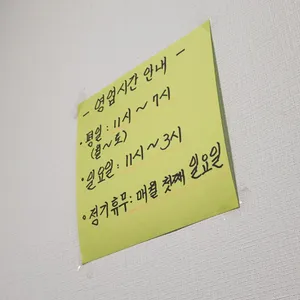 - 영업시간 안내 -
· 평일 : 11시 ~ 7시
(월~토)
· 일요일 : 11시 ~ 3시
· 정기휴무 : 매월 첫째 일요일